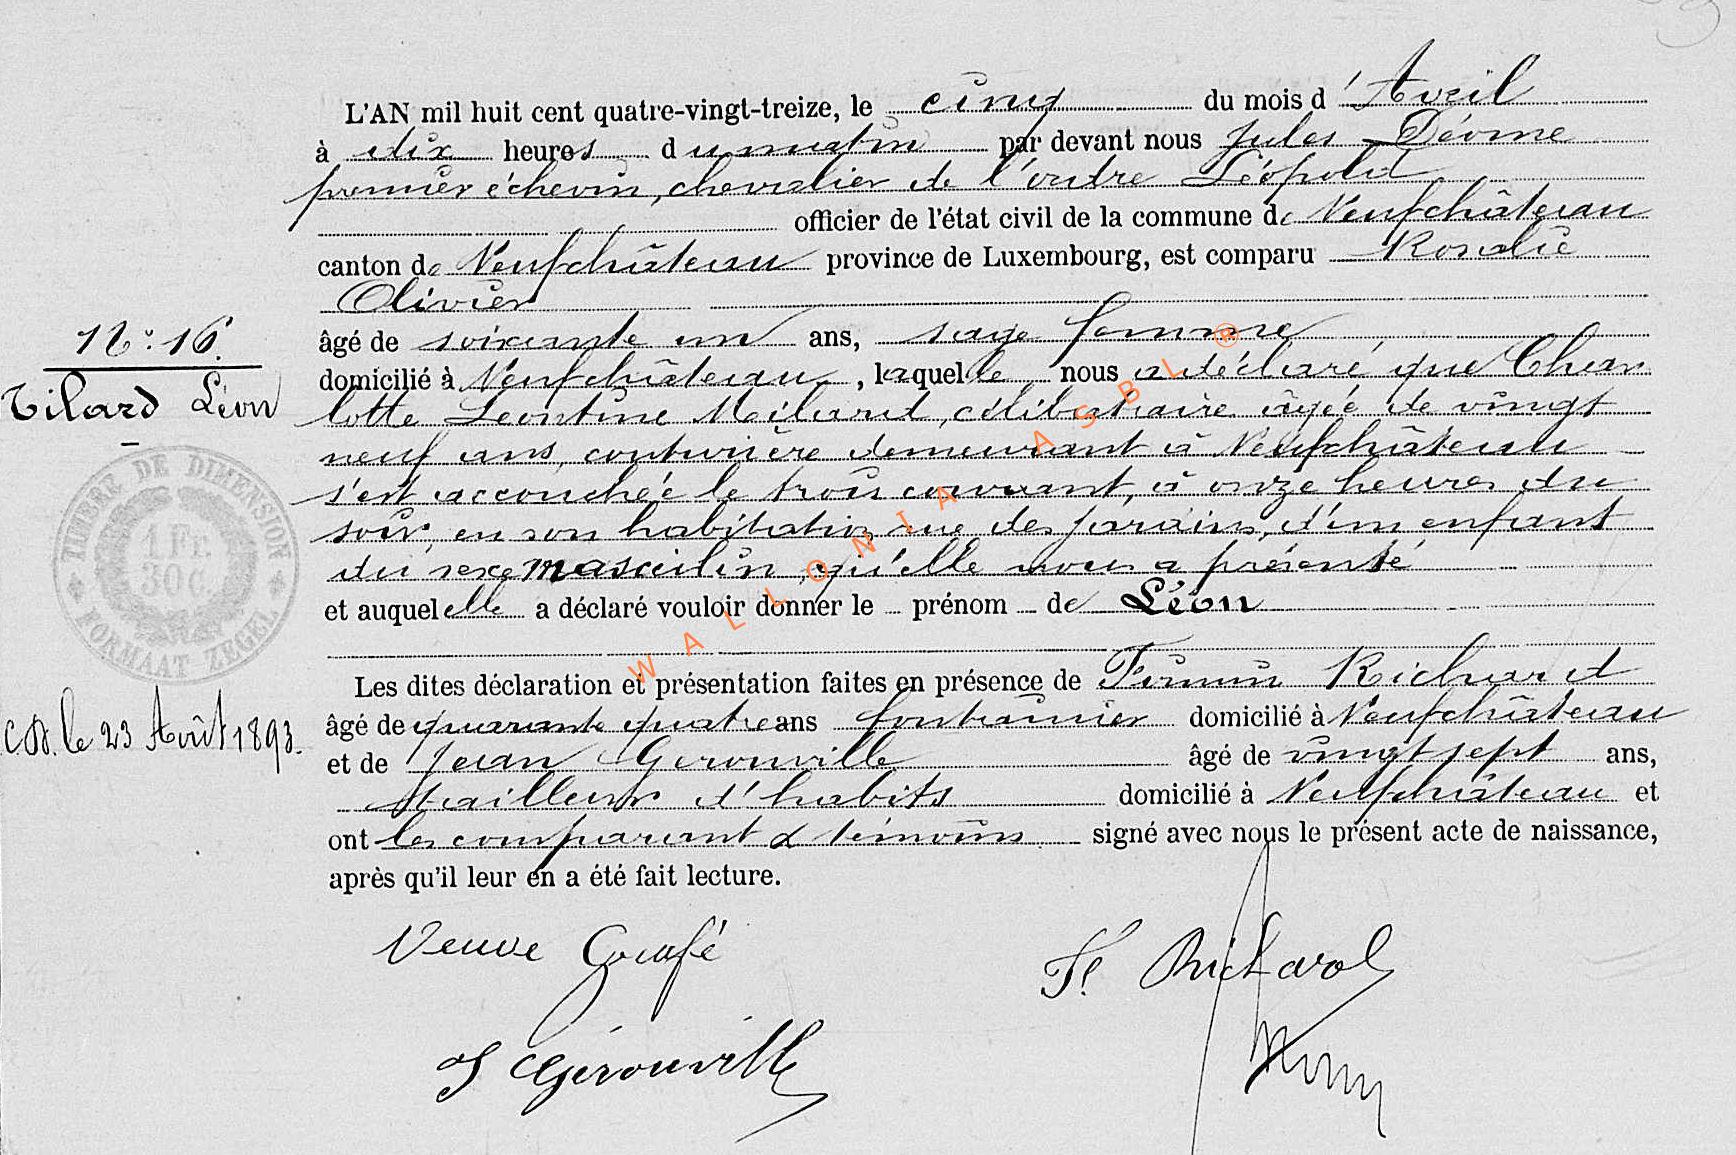 L'AN mil huit cent quatre-vingt-treize, le cinq du mois d'Avril
à dix heures du matin par devant nous Jules
premier échevin, chevalier de l'ordre Léopold
officier de l'état civil de la commune de Neufchâteau
canton de Neufchâteau province de Luxembourg, est comparu Rosalie
Olivier
N° 16.
âgé de soixante un ans, sage femme
domicilié à Neufchâteau, laquelle nous a déclaré que Char
Tilard Léon
lotte Léontine Milard, célibataire âgée de vingt
neuf ans, couturière demeurant à Neufchâteau
s'est accouchée le trois courant, à onze heures du
soir, en son habitation rue des jardins, d'un enfant
du sexe masculin, qu'elle nous a présenté
TIMBRE DE DIMENSION
1 Fr.
30 C.
FORMAAT ZEGEL
et auquel elle a déclaré vouloir donner le prénom de Léon
Les dites déclaration et présentation faites en présence de Firmin Richard
âgé de quarante quatre ans fontainier domicilié à Neufchâteau
C.D. le 23 Août 1893.
et de Jean Gerouville âgé de vingt sept ans,
tailleur d'habits domicilié à Neufchâteau et
ont les comparant & témoins signé avec nous le présent acte de naissance,
après qu'il leur en a été fait lecture.
Veuve Goffé
F. Richard
J Gérouville
WALLONIA ASBL ®